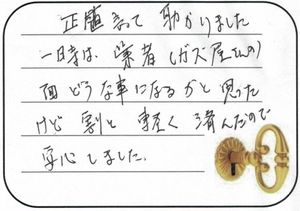 正直言って助かりました
一時は業者(ガス屋さんの)
面どうな事になるかと思った
けど割と軽く済んだので
安心しました。